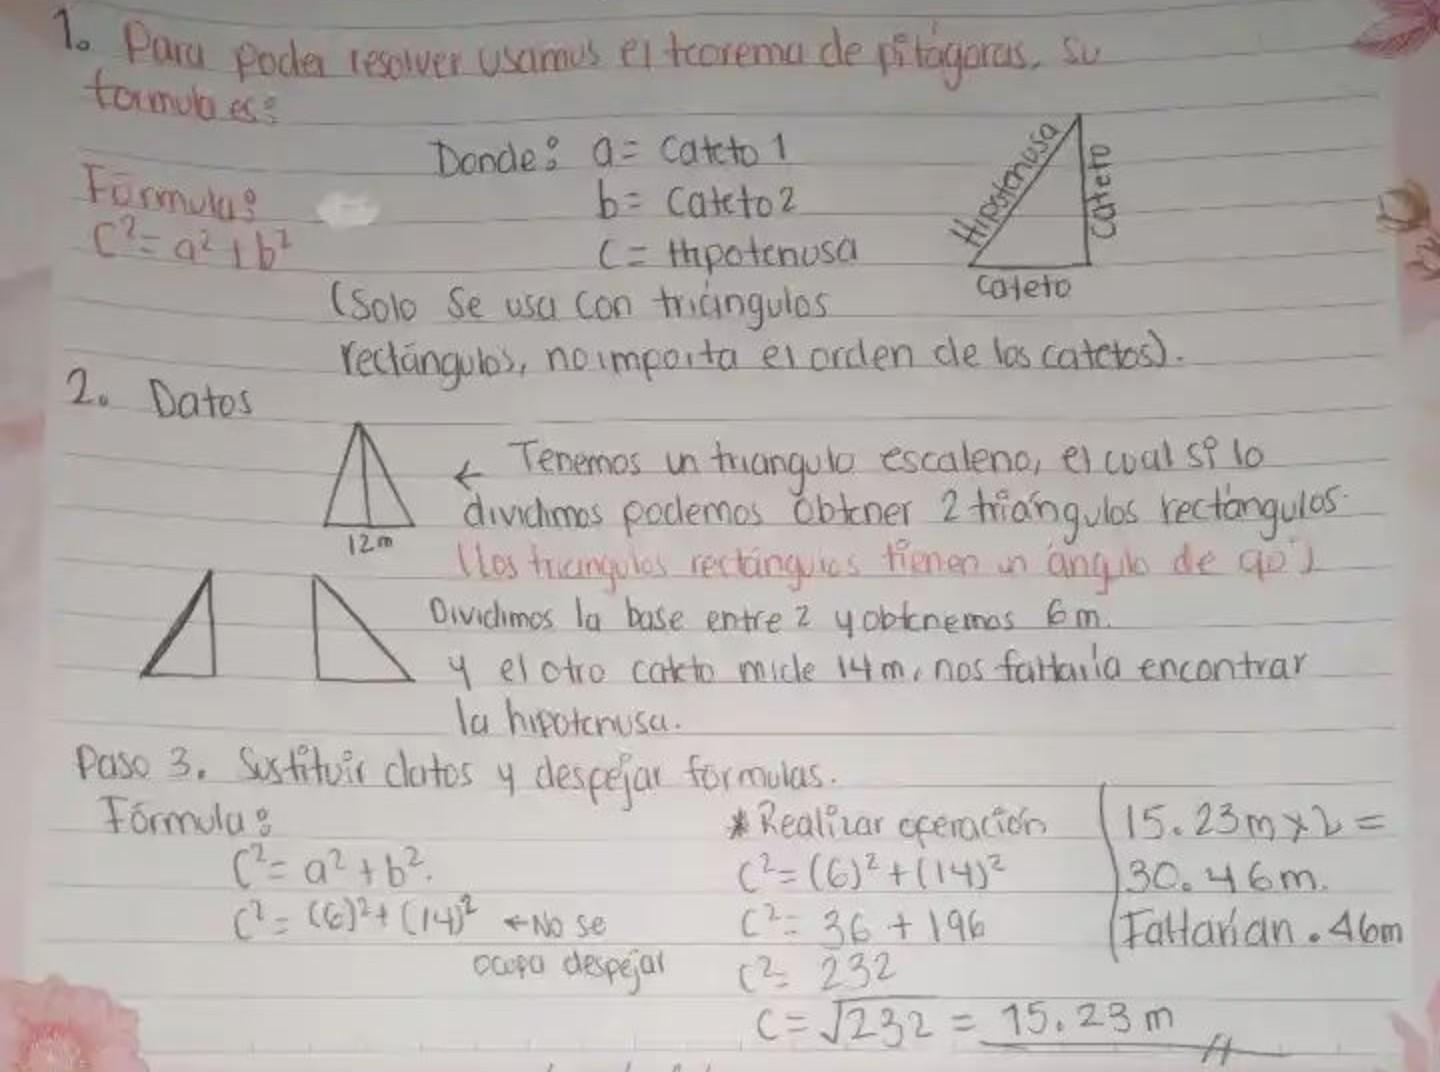 1. Para poder resolver usamos el teorema de pitágoras, su
formula es:
Donde: a = Cateto 1
Fórmula:
b = Cateto 2
C² = a² + b²
C = Hipotenusa
Hipotenusa
Cateto
Cateto
(Solo se usa con triángulos
rectángulos, no importa el orden de los catetos).
2. Datos
← Tenemos un triangulo escaleno, el cual si lo
dividimos podemos obtener 2 triángulos rectángulos.
12m
(Los triangulos rectángulos tienen un ángulo de 90°)
Dividimos la base entre 2 y obtenemos 6m.
y el otro cateto mide 14m, nos faltaria encontrar
la hipotenusa.
Paso 3. Sustituir datos y despejar fórmulas.
Fórmula:
C² = a² + b².
C² = (6)² + (14)² ← No se
ocupa despejar
* Realizar operación
C² = (6)² + (14)²
C² = 36 + 196
C² = 232
C = √232 = 15.23 m
15.23m x 2 =
30.46m.
Faltarían .46m